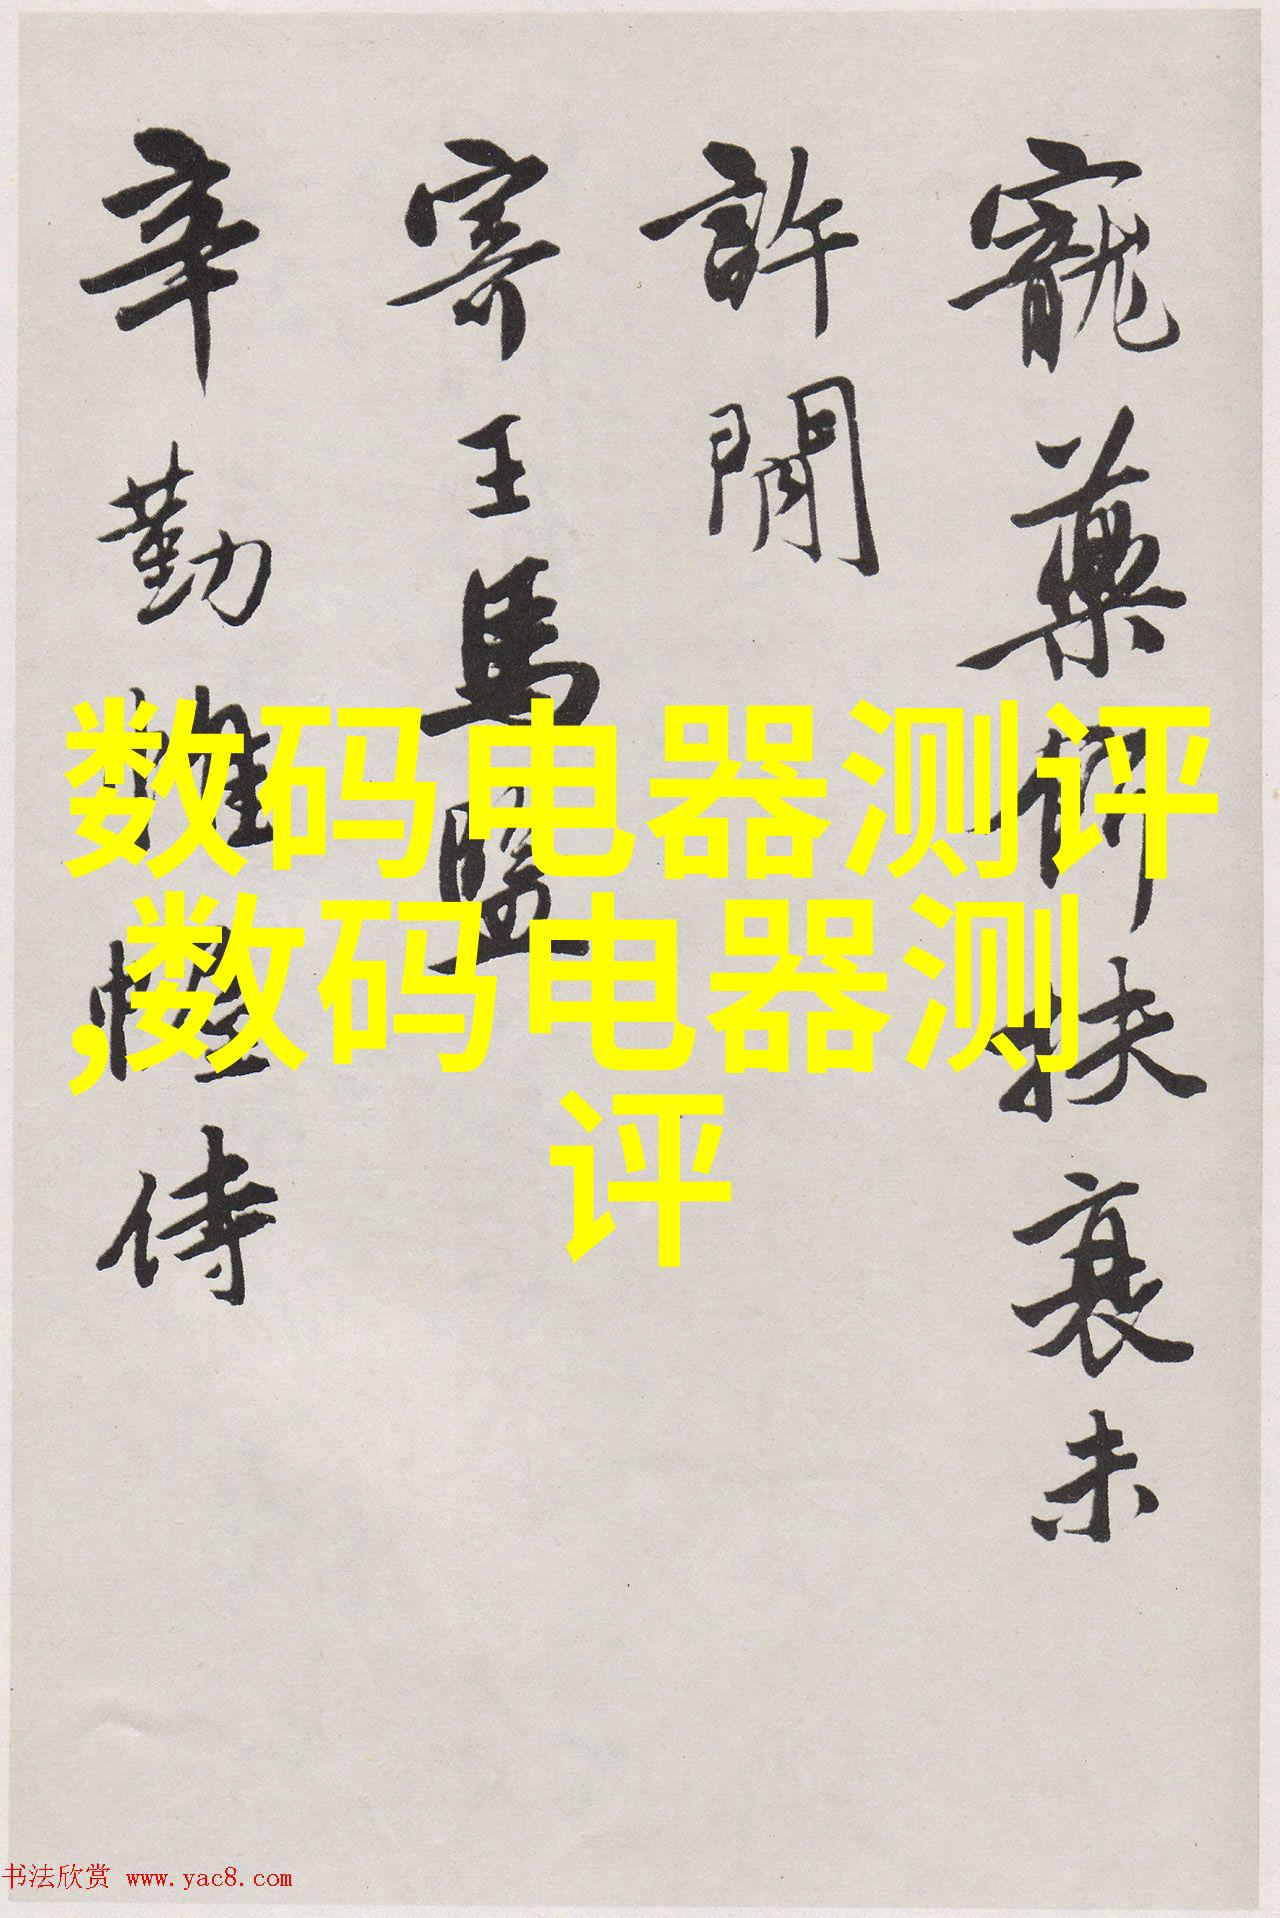 寵藥餌扶衰未
許閒
寄王馬醫
辛勤帷幄侍
数码电器测评
,数码电器测
评
书法欣赏 www.yac8.com